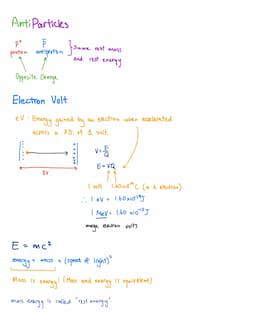 AntiParticles
P⁺ P̄
proton antiproton } Same rest mass and rest energy
Opposite Charge
Electron Volt
eV - Energy gained by an electron when accelerated
across a P.D. of 1 volt.
V = E/Q
E = VQ
1V
1 volt 1.60x10⁻¹⁹ C (on 1 electron)
∴ 1 eV = 1.60x10⁻¹⁹ J
1 MeV = 1.60 x10⁻¹³ J
mega electron volts
E = mc²
energy = mass × (speed of light)²
Mass is energy! (Mass and energy is equivalent)
mass energy is called 'rest energy'